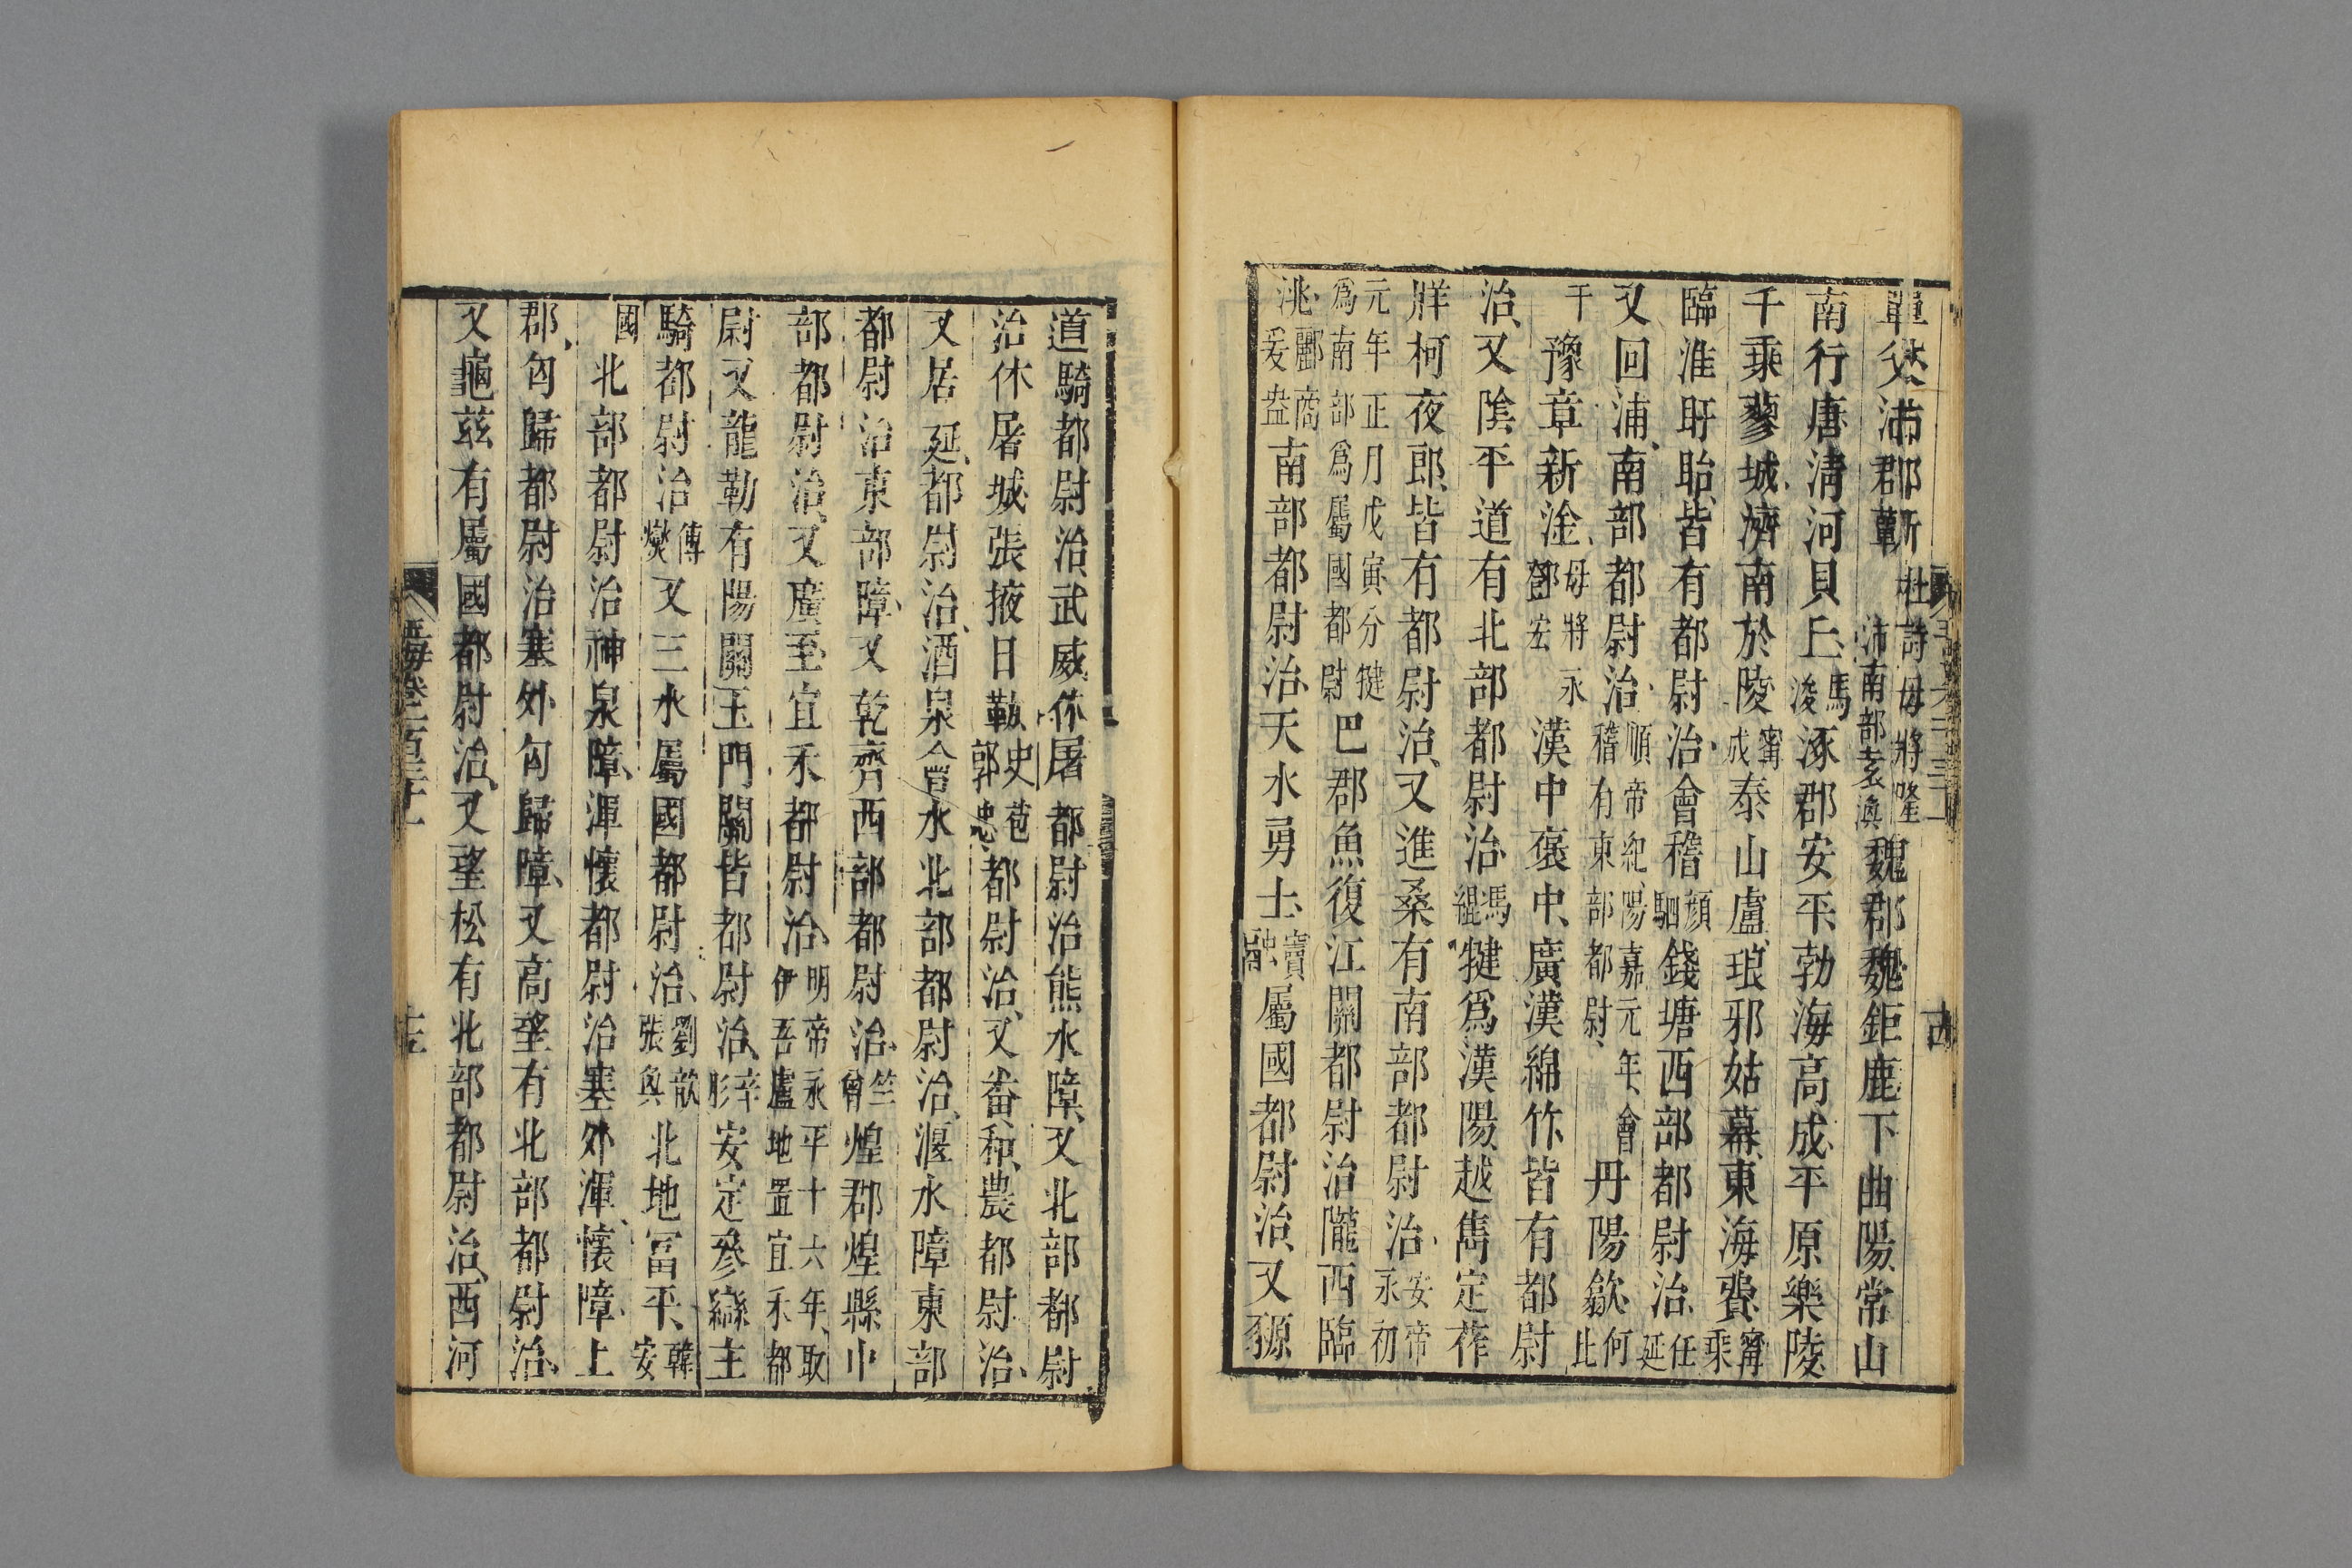 單父沛郡蘄杜詩毋將隆沛南部袁渙魏郡魏鉅鹿下曲陽常山
南行唐淸河貝丘馬浚涿郡安平勃海高成平原樂陵
千乘蓼城濟南於陵甯成泰山盧琅邪姑幕東海費甯乘
臨淮盱眙皆有都尉治會稽顏駟錢塘西部都尉治任延
又回浦南部都尉治順帝紀陽嘉元年會稽有東部都尉丹陽歙何比
干豫章新淦毋將永鄧宏漢中褒中廣漢綿竹皆有都尉
治又陰平道有北部都尉治馮緄犍爲漢陽越嶲定莋
牂柯夜郎皆有都尉治又進桑有南部都尉治安帝永初
元年正月戊寅分犍爲南部爲屬國都尉巴郡魚復江關都尉治隴西臨
洮酈商爰盎南部都尉治天水勇士竇融屬國都尉治又豲
道騎都尉治武威休屠都尉治熊水障又北部都尉
治休屠城張掖日勒史苞郭忠都尉治又番和農都尉治
又居延都尉治酒泉會水北部都尉治偃水障東部
都尉治東部障又乾齊西部都尉治竺曾煌郡煌縣中
部都尉治又廣至宜禾都尉治明帝永平十六年取伊吾盧地置宜禾都
尉又龍勒有陽關玉門關皆都尉治辛肜安定參䜌主
騎都尉治傅燮又三水屬國都尉治劉歆張奐北地富平韓安
國北部都尉治神泉障渾懷都尉治塞外渾懷障上
郡匈歸都尉治塞外匈歸障又高望有北部都尉治
又龜茲有屬國都尉治又望松有北部都尉治西河